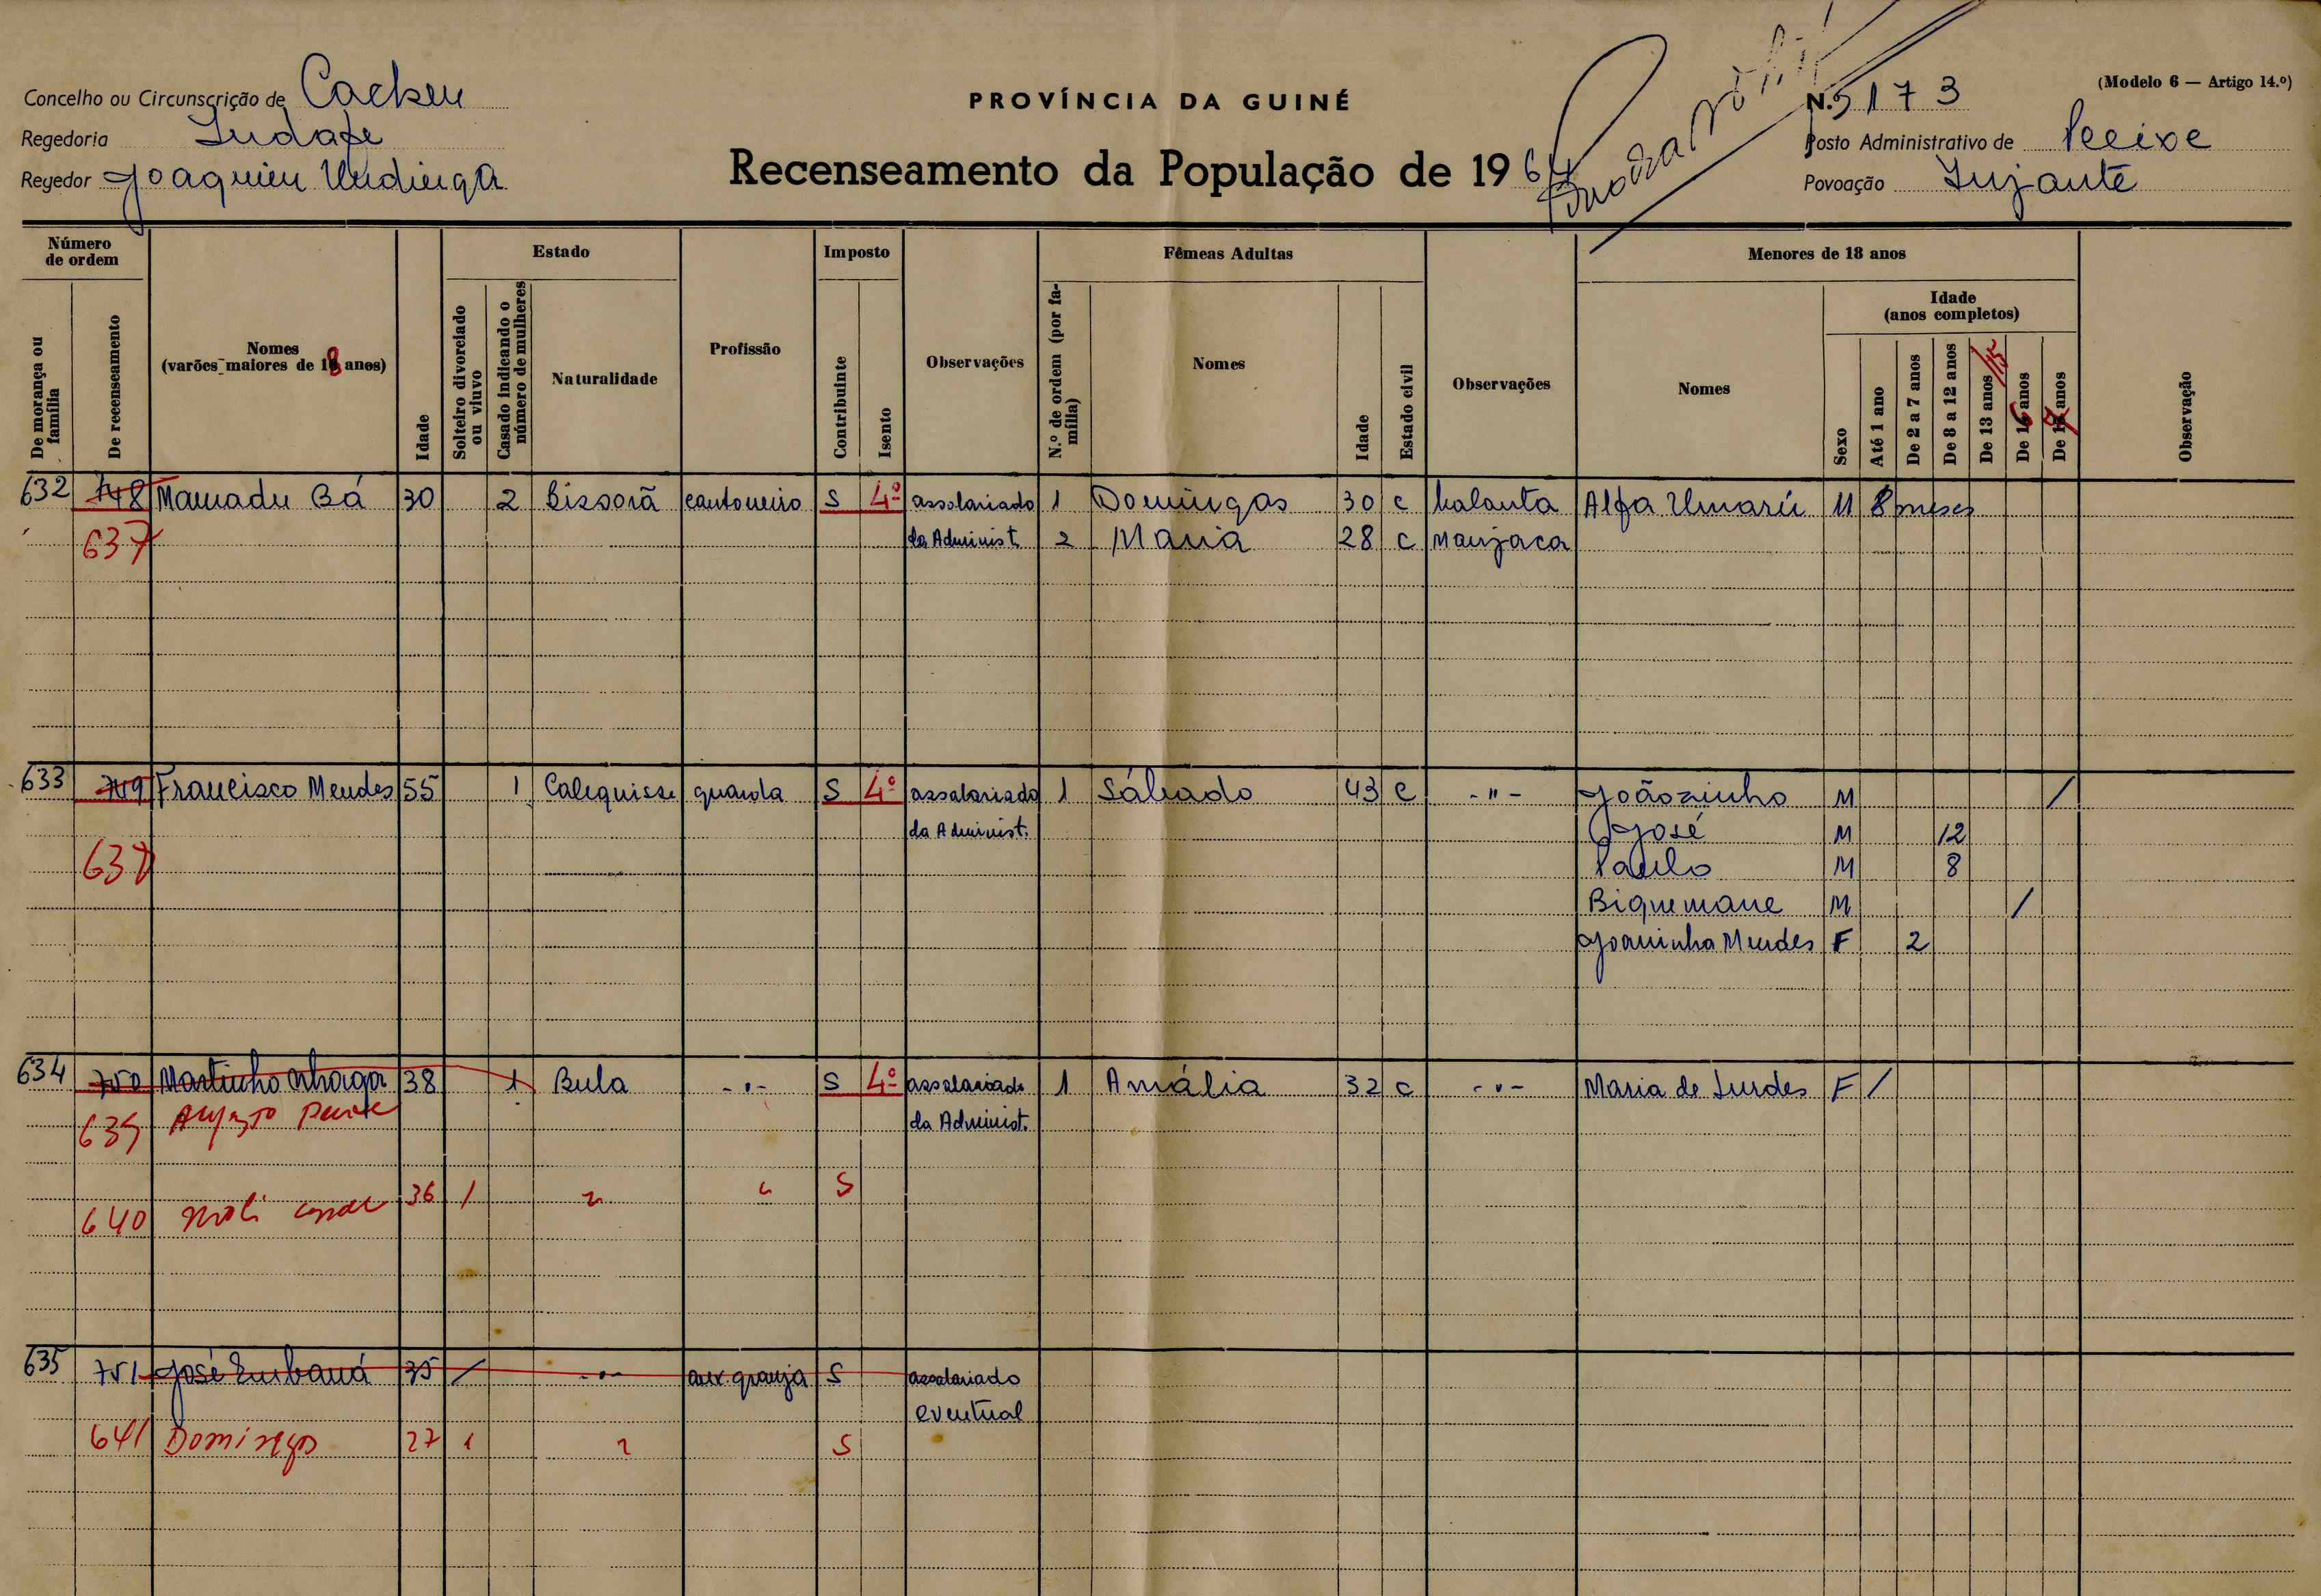 (Modelo 6 — Artigo 14.º)
Concelho ou Circunscrição de Cacheu
PROVÍNCIA DA GUINÉ
N.º 5173
Regedoria
Posto Administrativo de
Regedor Joaquim
Recenseamento da População de 1964
Povoação
Número de ordem
De morança ou família
De recenseamento
Nomes (varões maiores de 18 anos)
Idade
Estado
Solteiro divorciado ou viuvo
Casado indicando o número de mulheres
Naturalidade
Profissão
Imposto
Contribuinte
Isento
Observações
Fêmeas Adultas
N.º de ordem (por família)
Nomes
Idade
Estado civil
Observações
Menores de 18 anos
Nomes
Idade (anos completos)
Sexo
Até 1 ano
De 2 a 7 anos
De 8 a 12 anos
De 13 anos /15
De 16 anos
De 17 anos
Observação
632 748 Mamadu Bá 30 2 Bissorã cantoneiro S 4º assalariado 1 Domingas 30 c balanta Alfa Umarú M 8 meses
637 da Administ. 2 Maria 28 c manjaca
633 749 Francisco Mendes 55 1 Calequisse guarda S 4º assalariado 1 Sábado 43 c -"- Joãozinho M /
da Administ. José M 12
638 Paulo M 8
Biquemane M /
Joaninha Mendes F 2
634 750 Martinho Nhaga 38 1 Bula -"- S 4º assalariado 1 Amália 32 c -"- Maria de Lurdes F /
639 da Administ.
640 36 / S
635 751 José Embaná 35 / -"- aux. granja S assalariado
eventual
641 Domingos 27 1 S